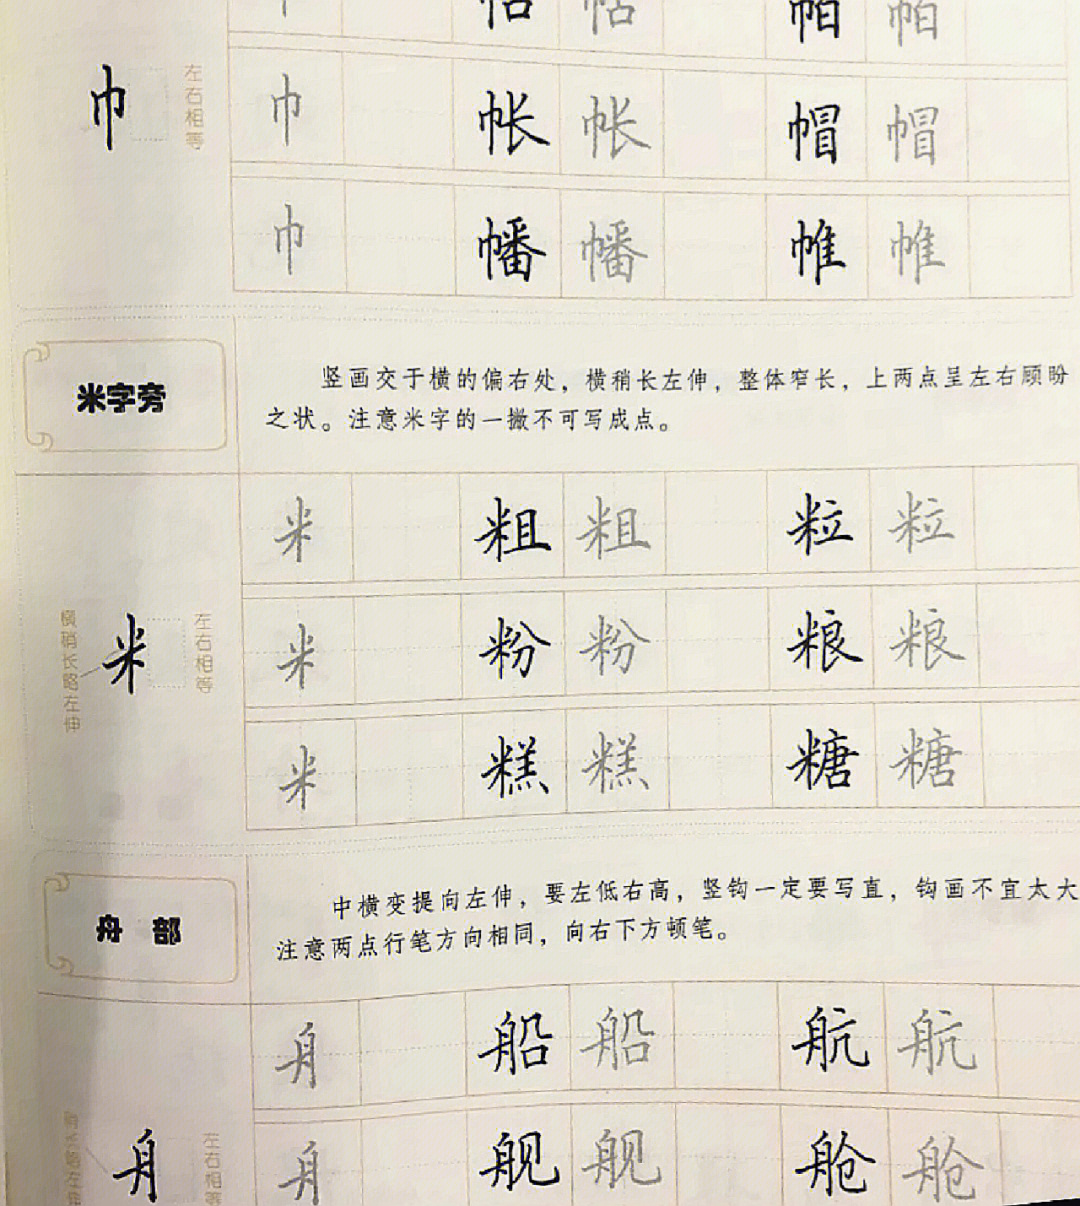 帖 帖 帕 帕
巾 左右相等
巾 帐 帐 帽 帽
巾 幡 幡 帷 帷
米字旁
竖画交于横的偏右处，横稍长左伸，整体窄长，上两点呈左右顾盼
之状。注意米字的一撇不可写成点。
米 粗 粗 粒 粒
横稍长略左伸 米 左右相等
米 粉 粉 粮 粮
米 糕 糕 糖 糖
舟 部
中横变提向左伸，要左低右高，竖钩一定要写直，钩画不宜太大
注意两点行笔方向相同，向右下方顿笔。
舟 船 船 航 航
舟 左右相等
舟 舰 舰 舱 舱